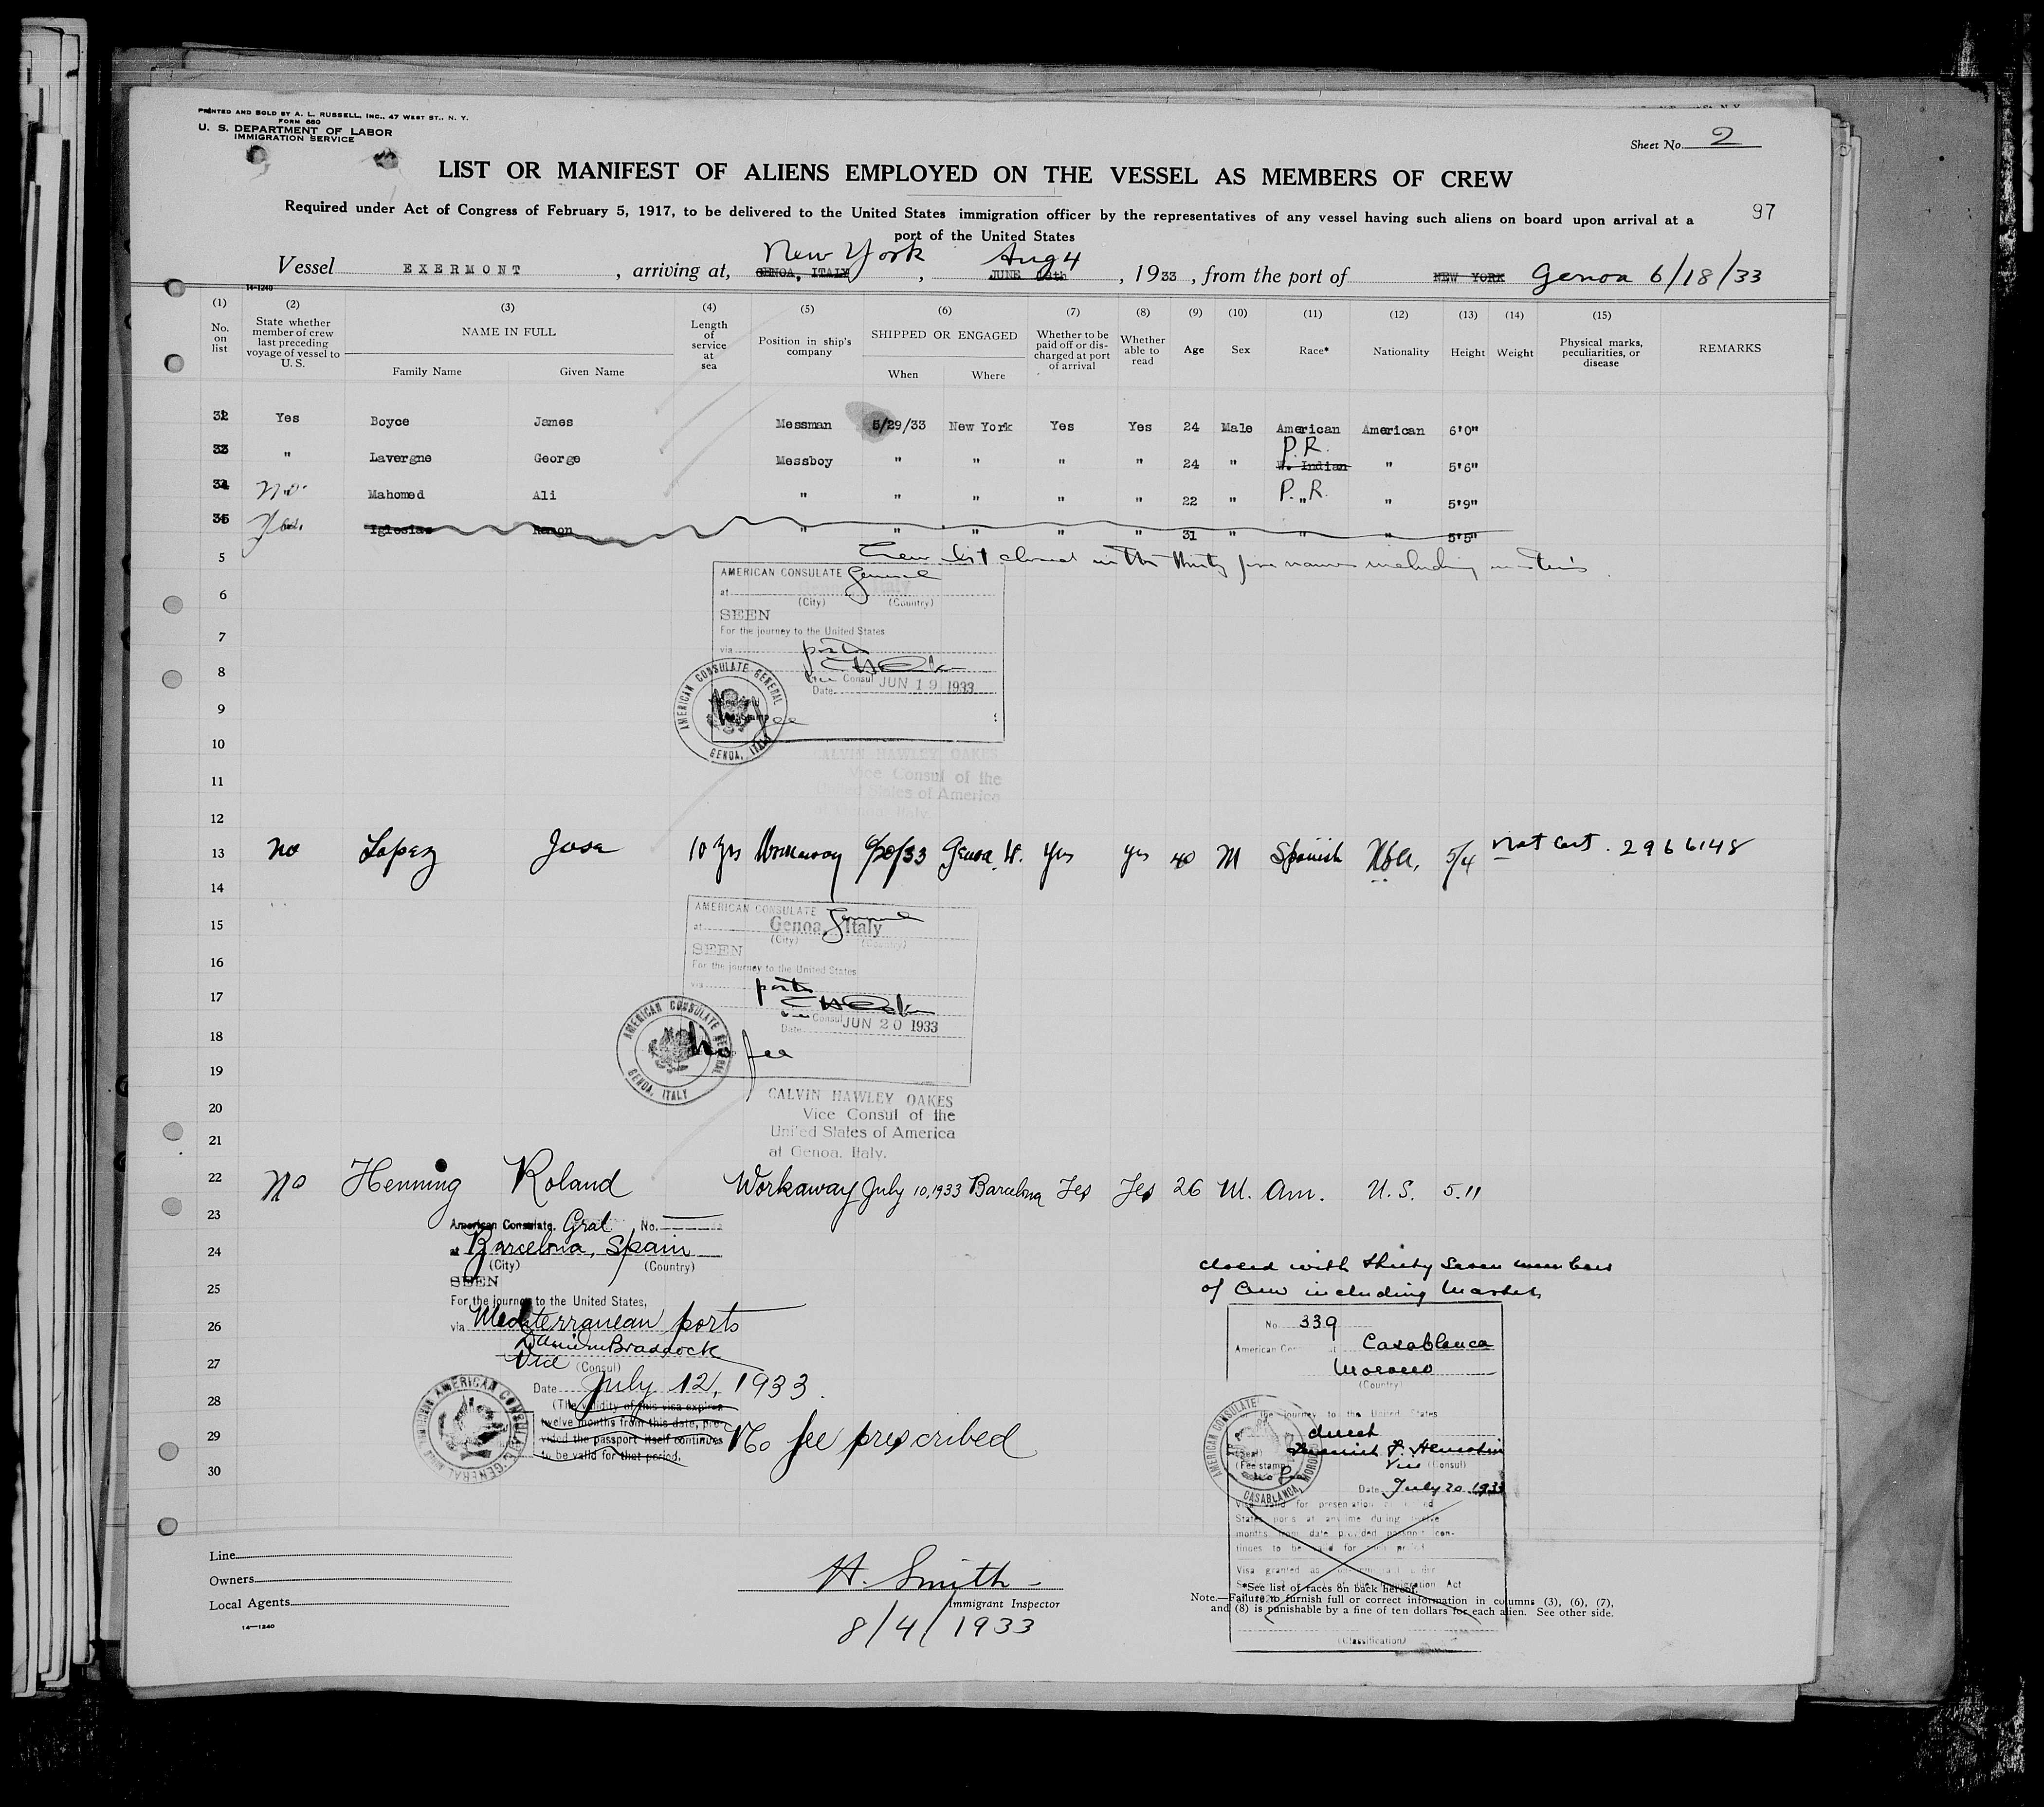 PRINTED AND SOLD BY A. L. RUSSELL, INC., 47 WEST ST., N. Y.
FORM 680
U. S. DEPARTMENT OF LABOR
IMMIGRATION SERVICE
Sheet No. 2
LIST OR MANIFEST OF ALIENS EMPLOYED ON THE VESSEL AS MEMBERS OF CREW
Required under Act of Congress of February 5, 1917, to be delivered to the United States immigration officer by the representatives of any vessel having such aliens on board upon arrival at a
port of the United States
97
New York Aug 4
Vessel EXERMONT, arriving at, GENOA, ITALY, JUNE 18th, 1933, from the port of NEW YORK Genoa 6/18/33
14-1240
(1) (2) (3) (4) (5) (6) (7) (8) (9) (10) (11) (12) (13) (14) (15)
No. on list
State whether member of crew last preceding voyage of vessel to U. S.
NAME IN FULL
Family Name Given Name
Length of service at sea
Position in ship's company
SHIPPED OR ENGAGED
When Where
Whether to be paid off or discharged at port of arrival
Whether able to read
Age Sex Race* Nationality Height Weight
Physical marks, peculiarities, or disease
REMARKS
Yes Boyce James Messman 5/29/33 New York Yes Yes 24 Male American American 6'0"
P.R.
" Lavergne George Messboy " " " " 24 " W. Indian " 5'6"
No. Mahomed Ali " " " " " 22 " P.R. " 5'9"
Yes. Iglesias Ramon " " " " " 31 " " " 5'5"
5 Crew list closed with thirty five names including master's
AMERICAN CONSULATE General
6 at
(City) (Country)
SEEN
7 For the journey to the United States
via ports
8
Vice Consul
Date JUN 19 1933
AMERICAN CONSULATE GENERAL GENOA, ITALY
9 No fee
10 CALVIN HAWLEY OAKES
11 Vice Consul of the
United States of America
12 at Genoa, Italy.
13 No Lopez Jose 10 yrs Workaway 6/20/33 Genoa It. Yes yes 40 M Spanish USA. 5/4 Nat Cert. 2966148
14
AMERICAN CONSULATE General
15 at Genoa, Italy
(City) (Country)
SEEN
16 For the journey to the United States
17 via ports
Vice Consul
Date JUN 20 1933
AMERICAN CONSULATE GENERAL GENOA, ITALY
18 No fee
19
20 CALVIN HAWLEY OAKES
Vice Consul of the
21 United States of America
at Genoa, Italy.
22 No Henning Roland Workaway July 10, 1933 Barcelona Yes Yes 26 M. Am. U.S. 5.11
23 American Consulate Gral No.
24 at Barcelona, Spain
(City) (Country)
SEEN
25 For the journey to the United States,
26 via Mediterranean ports
Daniel Braddock
27 Vice (Consul)
Date July 12, 1933.
28 (The validity of this visa expires
twelve months from this date, pro-
29 vided the passport itself continues
to be valid for that period.
No fee prescribed
30
AMERICAN CONSULATE GENERAL
closed with thirty seven members
of crew including Master
No. 339
American Casablanca
Morocco
(Country)
the journey to the United States
direct
(Fee stamp)
no fee
Vice (Consul)
Date July 20 1933
AMERICAN CONSULATE CASABLANCA, MOROCCO
Visa valid for presentation at United
States ports at any time during twelve
months from date provided passport con-
tinues to be valid for such period
Visa granted as
Immigration Act
(Classification)
Line
Owners
Local Agents
14—1240
H. Smith
Immigrant Inspector
8/4/1933
*See list of races on back hereof.
Note.—Failure to furnish full or correct information in columns (3), (6), (7),
and (8) is punishable by a fine of ten dollars for each alien. See other side.